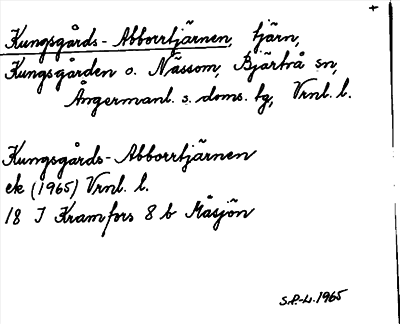 +
Kungsgårds-Abborrtjärnen, tjärn,
Kungsgården o. Nässom, Bjärtrå sn,
Ångermanl. s. doms. tg, Vrnl. l.
Kungsgårds-Abborrtjärnen
ek (1965) Vrnl. l.
18 I Kramfors 8 b Måsjön
S.P.-L. 1965